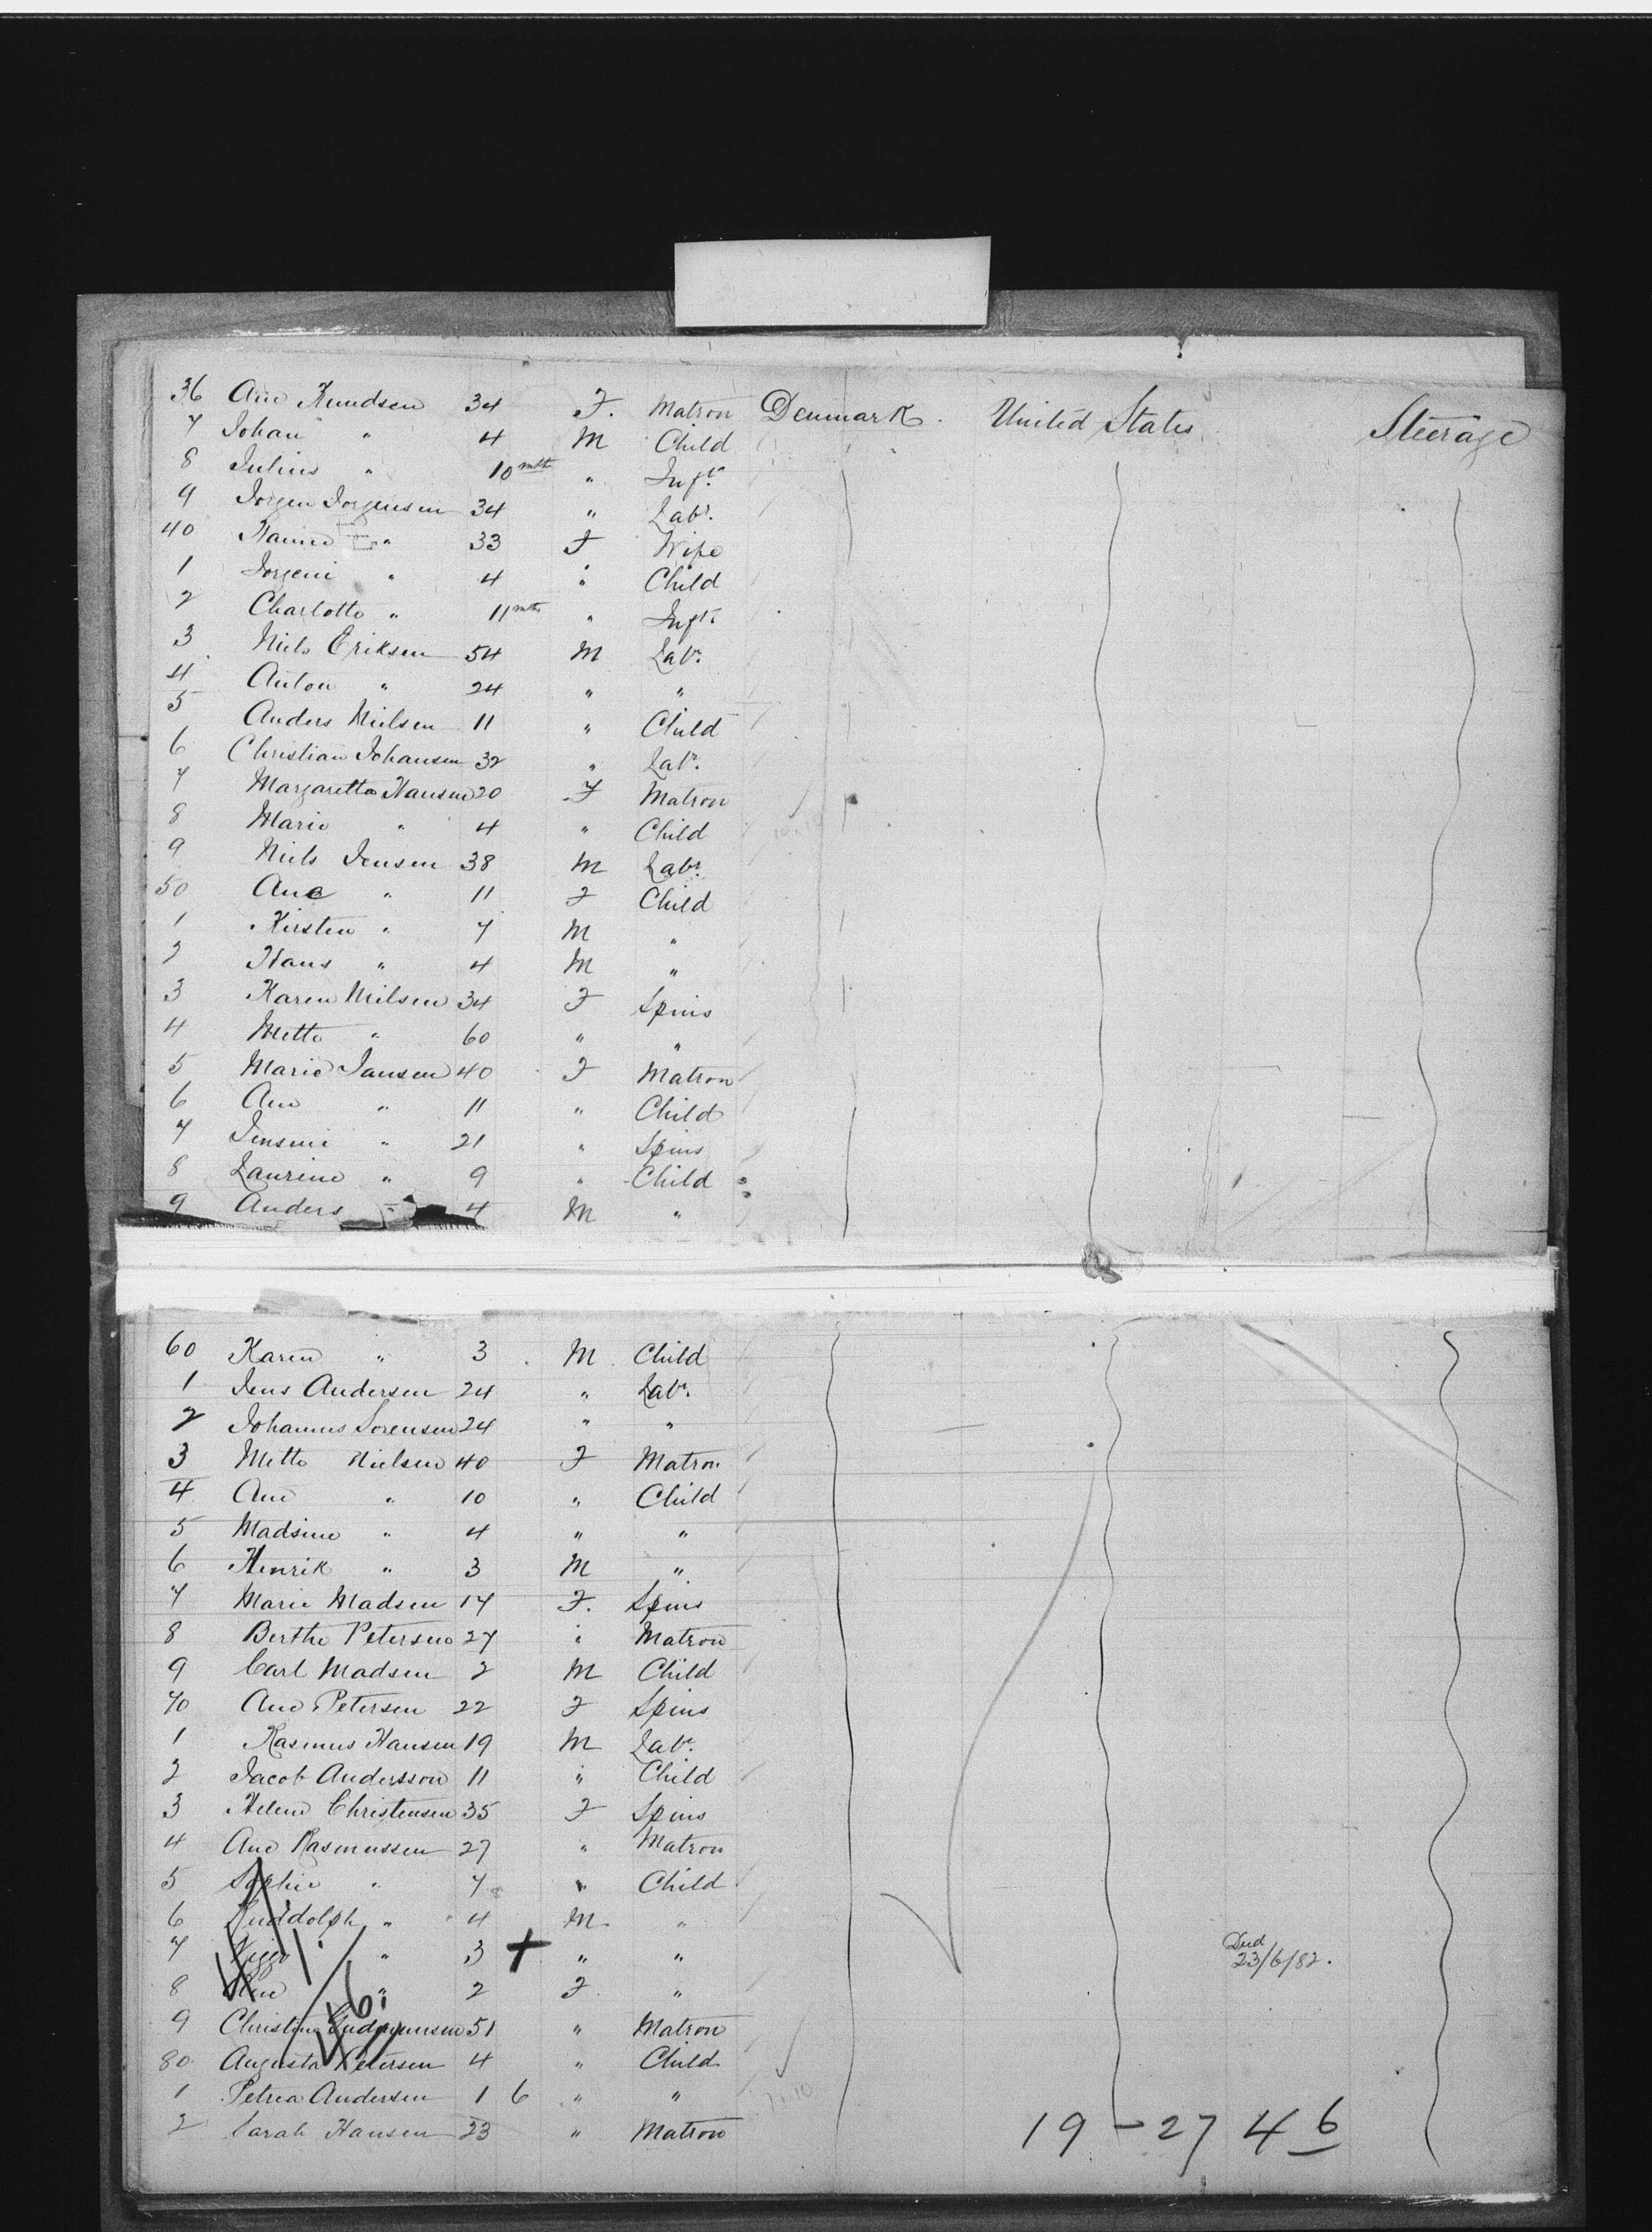 36 Ane Knudsen 34 F. Matron Denmark. United States Steerage
7 Johan " 4 M Child
8 Julius " 10 mths " Inft.
9 Jorgen Jorgensen 34 " Labr.
40 Hanne " 33 F Wife
1 Jorgeni " 4 " Child
2 Charlotte " 11 mths " Inft.
3 Niels Eriksen 54 M Labr.
4 Anton " 24 " "
5 Anders Nielsen 11 " Child
6 Christian Johansen 32 " Labr.
7 Margaretta Hansen 20 F Matron
8 Marie " 4 " Child
9 Niels Jensen 38 M Labr.
50 Ane " 11 F Child
1 Kirsten " 7 M "
2 Hans " 4 M "
3 Karen Nielsen 34 F Spins
4 Mette " 60 " "
5 Marie Jansen 40 F Matron
6 Ane " 11 " Child
7 Jensine " 21 " Spins
8 Laurine " 9 " Child
9 Anders " 4 M "
60 Karen " 3 M Child
1 Jens Andersen 24 " Labr.
2 Johannes Sorensen 24 " "
3 Mette Nielsen 40 F Matron
4 Ane " 10 " Child
5 Madsine " 4 " "
6 Henrik " 3 M "
7 Marie Madsen 17 F. Spins
8 Berthe Petersen 27 " Matron
9 Carl Madsen 2 M Child
70 Ane Petersen 22 F Spins
1 Rasmus Hansen 19 M Labr.
2 Jacob Andersson 11 " Child
3 Helene Christensen 35 F Spins
4 Ane Rasmussen 27 " Matron
5 Sophie " 7 " Child
6 Ruddolph " 4 M "
7 Viggo " 3 + " " Died 23/6/82.
8 " 2 F "
9 Christine 51 " Matron
80 Augusta Petersen 4 " Child
1 Petrea Andersen 1 6 " "
2 Sarah Hansen 23 " Matron
19 - 27 46